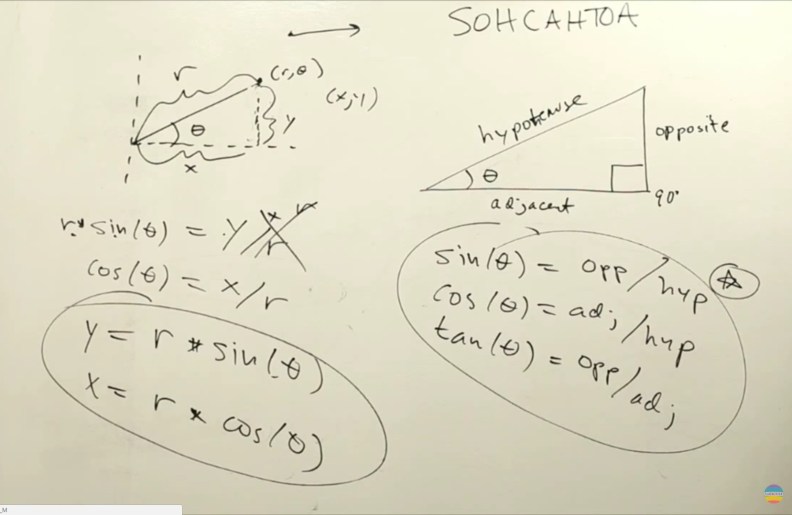 SOHCAHTOA
r
(r,θ)
(x,y)
θ
y
x
hypotenuse
opposite
θ
adjacent
90°
r*sin(θ) = y
cos(θ) = x/r
y = r * sin(θ)
x = r * cos(θ)
sin(θ) = opp/hyp
cos(θ) = adj/hyp
tan(θ) = opp/adj